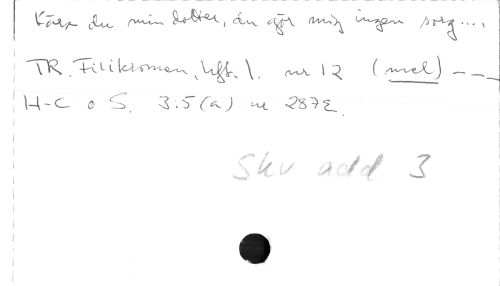 Kära du min dotter, du gör mig ingen sorg....
TR. Filikromen, hft. 1. nr 12 (mel) - - -
H-C o S. 3.5(a) nr 287 E.
Skv add 3